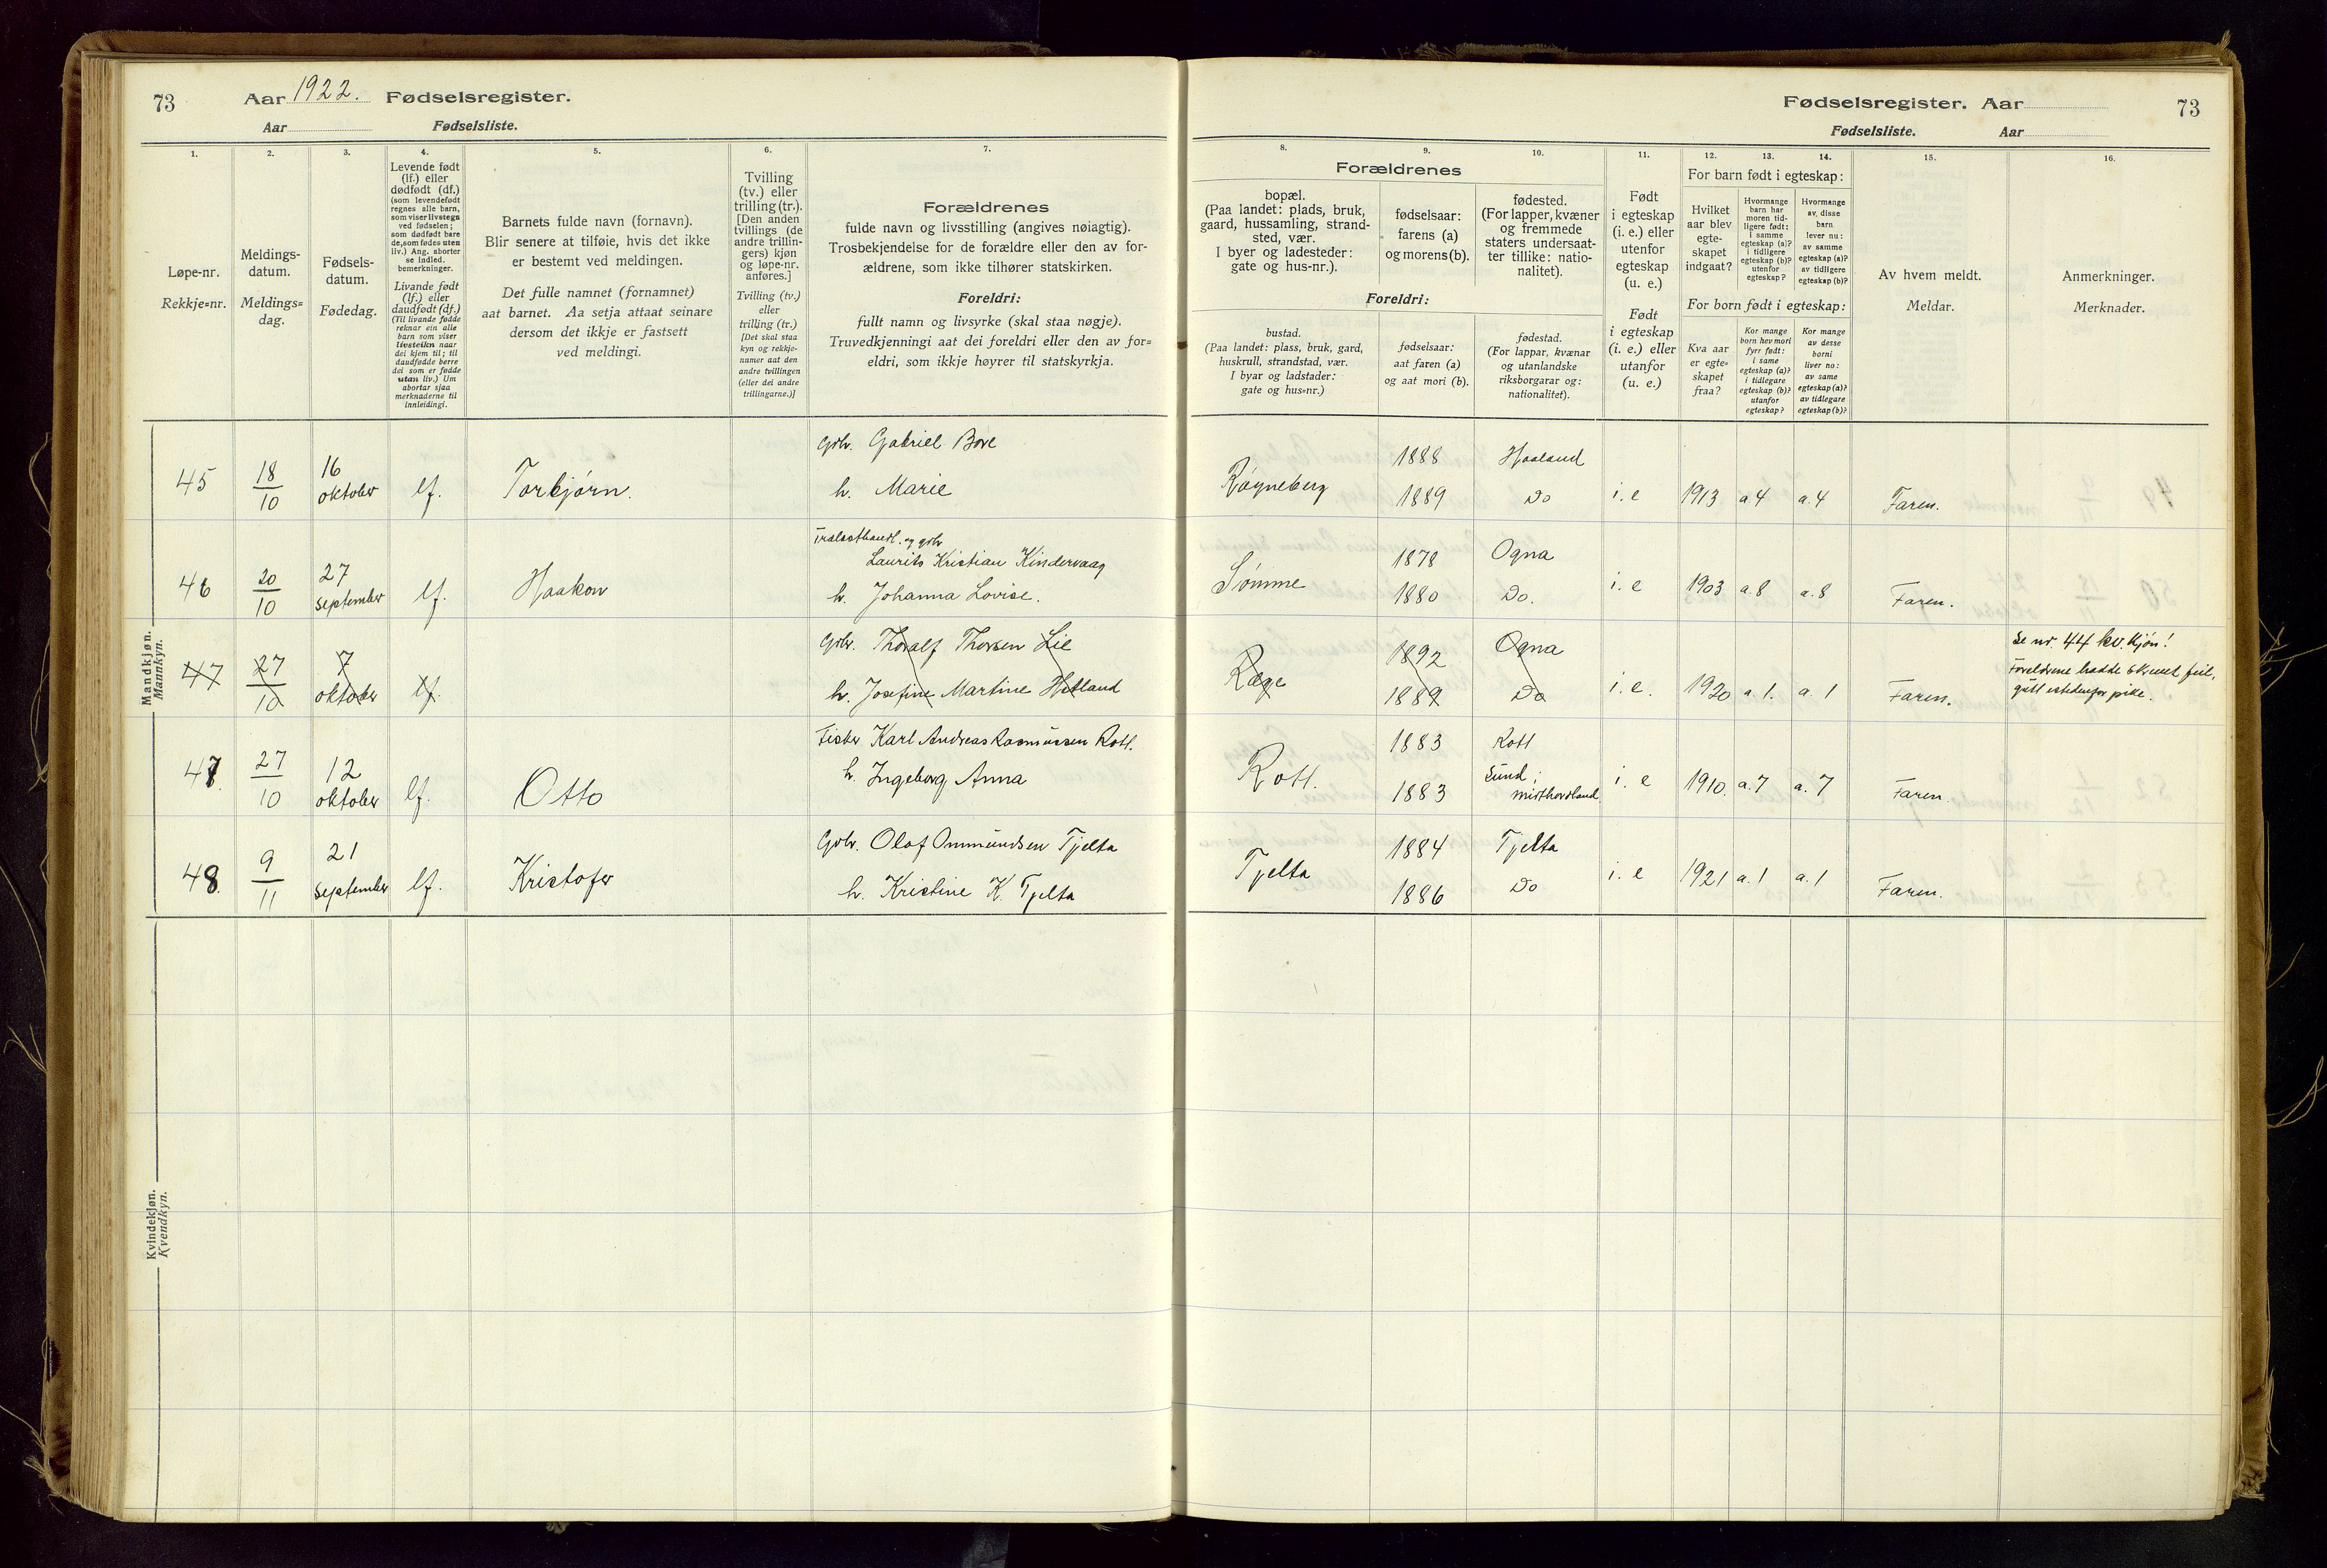 73
Aar 1922. Fødselsregister.
Aar Fødselsliste.
Fødselsregister. Aar
73
Fødselsliste. Aar
1.
Løpe-nr.
Rekkje=nr.
2.
Meldings-
datum.
Meldings=
dag.
3.
Fødsels-
datum.
Fødedag.
4.
Levende født
(lf.) eller
dødfødt (df.)
(som levendefødt
regnes alle barn,
som viser livstegn
ved fødselen;
som dødfødt bare
de, som fødes uten
liv.) Ang. aborter
se indled.
bemerkninger.
Livande født
(lf.) eller
daudfødt (df.)
(Til livande fødde
reknar ein alle
barn som viser
livsteikn naar
dei kjem til; til
daudfødde berre
dei som er fødde
utan liv.) Um
abortar sjaa
merknaderne til
innleidingi.
5.
Barnets fulde navn (fornavn).
Blir senere at tilføie, hvis det ikke
er bestemt ved meldingen.
Det fulle namnet (fornamnet)
aat barnet. Aa setja attaat seinare
dersom det ikkje er fastsett
ved meldingi.
6.
Tvilling
(tv.) eller
trilling (tr.).
[Den anden
tvillings (de
andre trillin-
gers) kjøn
og løpe-nr.
anføres.]
Tvilling (tv.)
eller
trilling (tr.)
[Det skal staa
kyn og rekkje-
numer aat den
andre tvillingen
(eller dei andre
trillingarne.)]
7.
Forældrenes
fulde navn og livsstilling (angives nøiagtig).
Trosbekjendelse for de forældre eller den av for-
ældrene, som ikke tilhører statskirken.
Foreldri:
fullt namn og livsyrke (skal staa nøgje).
Truvedkjenningi aat dei foreldri eller den av for=
eldri, som ikkje høyrer til statskyrkja.
8.
Forældrenes
bopæl.
(Paa landet: plads, bruk,
gaard, hussamling, strand-
sted, vær.
I byer og ladesteder:
gate og hus-nr.).
Foreldri:
bustad.
(Paa landet: plass, bruk, gard,
huskrull, strandstad, vær.
I byar og ladstader:
gate og hus=nr.)
9.
fødselsaar:
farens (a)
og morens (b).
fødselsaar:
aat faren (a)
og aat mori (b).
10.
fødested.
(For lapper, kvæner
og fremmede
staters undersaat-
ter tillike: natio-
nalitet).
fødestad.
(For lappar, kvænar
og utanlandske
riksborgarar og:
nationalitet).
11.
Født
i egteskap
(i. e.) eller
utenfor
egteskap
(u. e.)
Født
i egteskap
(i. e.) eller
utanfor
(u. e.)
12. 13. 14.
For barn født i egteskap:
Hvilket
aar blev
egte-
skapet
indgaat?
Hvormange
barn har
moren tid-
ligere født:
i samme
egteskap (a)?
i tidligere
egteskap (b)?
utenfor
egteskap?
Hvormange
av disse
barn
lever nu:
av samme
egteskap (a)?
av tidligere
egteskap (b)?
For born født i egteskap:
Kva aar
er egte-
skapet
fraa?
Kor mange
born hev mori
fyrr født:
i same
egteskap (a)?
i tidlegare
egteskap (b)?
utanfor
egteskap?
Kor mange
av desse
borni
liver no:
av same
egteskap (a)?
av tidlegare
egteskap (b)?
15.
Av hvem meldt.
Meldar.
16.
Anmerkninger.
Merknader.
Mandkjøn.
Mannkyn.
45 18/10 16 oktober lf. Torbjørn. Grbr. Gabriel Bore
h. Marie
Røyneberg 1888 Haaland
1889 Do i. e 1913 a 4 a. 4 Faren.
46 20/10 27 september lf. Haakon Trælasthandl. og grbr
Laurits Kristian Kindervaag
h. Johanna Lovise.
Sømme 1878 Ogna
1880 Do. i. e 1903 a. 8 a. 8 Faren.
47 27/10 7 oktober lf. Grbr. Thoralf Thorsen Lie
h. Josefine Martine Hetland
Ræge 1892 Ogna
1889 Do i. e. 1920 a. 1. a. 1 Faren.
Se nr. 44 kv. kjøn!
Foreldrene hadde skrevet feil,
gutt istedenfor pike.
47 27/10 12 oktober lf. Otto Fisker Karl Andreas Rasmussen Rott.
h. Ingeborg Anna
Rott. 1883 Rott
1883 Sund, midthordland i. e 1910. a. 7 a. 7 Faren.
48. 9/11 21 september lf. Kristofer Grbr. Olaf Ommundsen Tjelta
h. Kristine K. Tjelta
Tjelta 1884 Tjelta
1886 Do i. e 1921 a. 1 a. 1 Faren.
Kvindekjøn.
Kvendkyn.